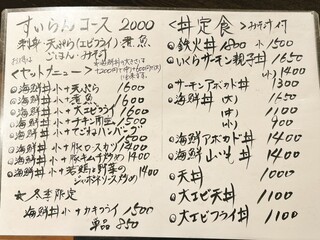 すいらんコース 2000
天ぷら(エビフライ) 煮魚
ごはん・みそ汁
<セットメニュー>
海鮮丼小+天ぷら 1600
海鮮丼小+煮魚 1600
海鮮丼小+大エビフライ 1600
海鮮丼小+チキン南蛮 1500
海鮮丼小+てごねハンバーグ 1500
海鮮丼小+豚ロースカツ 1400
海鮮丼小+豚キムチ炒め 1400
海鮮丼小+若鶏と野菜の 1400
ジャポネソース炒め
★ 冬季限定
海鮮丼小+カキフライ 1500
単品 850
<丼定食> みそ汁付
鉄火丼 1800 小 1500
いくらサーモン親子丼 1650
(小) 1400
サーモンアボカド丼 1300
海鮮丼 (大) 1500
(小) 1100
海鮮アボカド丼 1400
海鮮山いも丼 1400
天丼 1000
大エビ天丼 1100
大エビフライ丼 1100